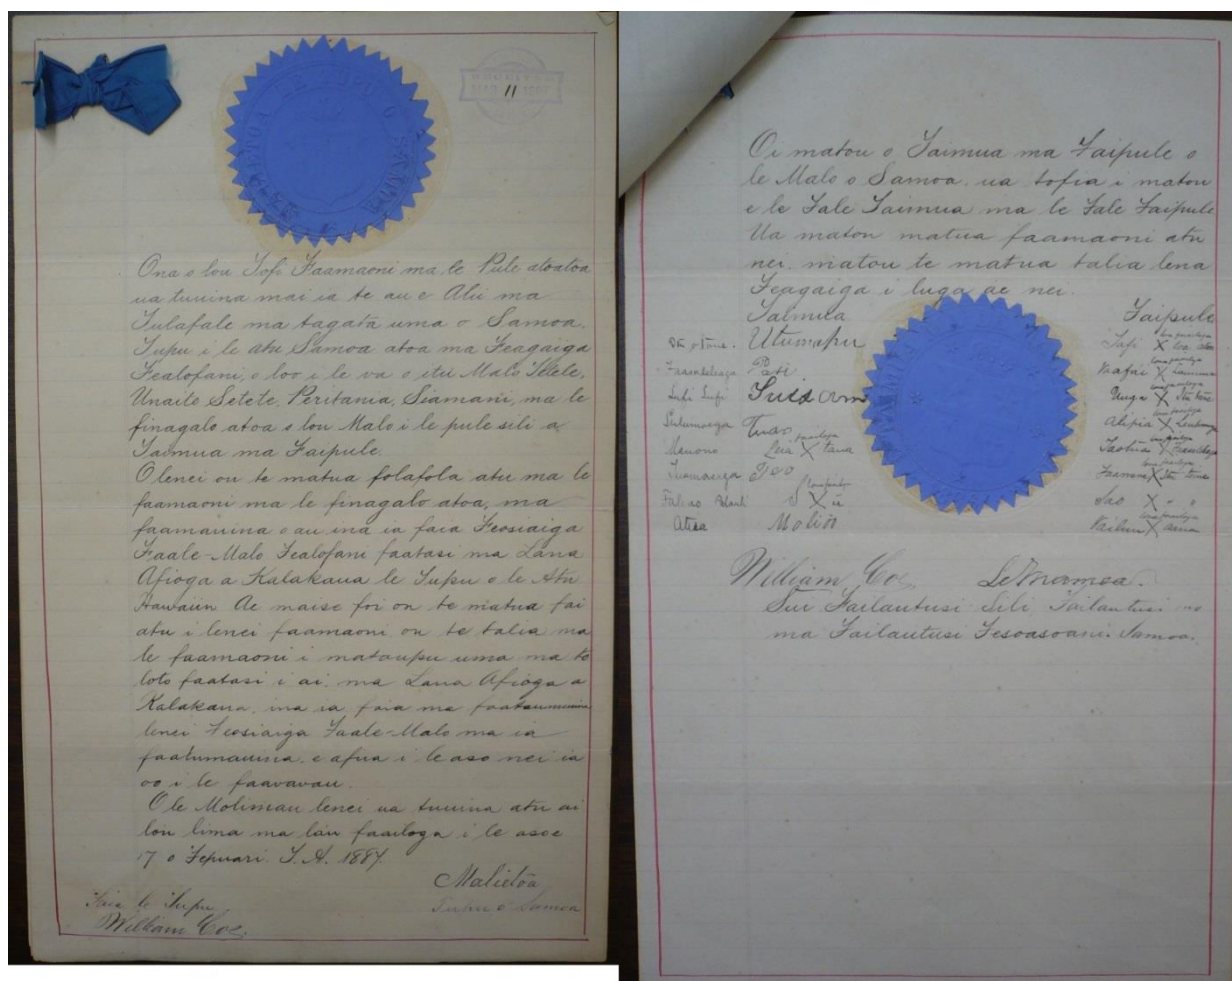 MALIETOA LE TUPU O SAMOA
RECEIVED
11
Ona o lou Tofi Faamaoni ma le Pule atoatoa
ua tuuina mai ia te au e Alii ma
Tulafale ma tagata uma o Samoa.
Tupu i le atu Samoa atoa ma Feagaiga
Fealofani, o loo i le va o itu Malo Tetele,
Unaite Setete, Peritania, Siamani, ma le
finagalo atoa o lou Malo i le pule sili a
Taimua ma Faipule.
O lenei ou te matua folafola atu ma le
faamaoni ma le finagalo atoa, ma
faamauina o au ina ia faia Feosiaiga
Faale-Malo Fealofani faatasi ma Lana
Afioga a Kalakaua le Tupu o le Atu
Hawaiin Ae maise foi ou te matua fai
atu i lenei faamaoni ou te talia ma
le faamaoni i mataupu uma ma to
loto faatasi i ai, ma Lana Afioga a
Kalakaua, ina ia faia ma faatumauina
lenei Feosiaiga Faale-Malo ma ia
faatumauina, e afua i le aso nei ia
oo i le faavavau.
O le Molimau lenei ua tuuina atu ai
lou lima ma lau faailoga i le aso e
17 o Fepuari. T. A. 1887.
Malietoa
Tupu o Samoa
le Tupu
William Coe.
Oi matou o Taimua ma Faipule o
le Malo o Samoa, ua tofia i matou
e le Fale Taimua ma le Fale Faipule
Ua matou matua faamaoni atu
nei, matou te matua talia lena
Feagaiga i luga ae nei.
Taimua
Faipule
Utumapu
Tafi X
Pasi
Mafai X
Lufi Lufi
Unga X
Alipia X
Manono
Leia X tana
Tuamasaga
X
Sao X
Atua
Moli
William Coe. Le Mamea.
Sui Failautusi Sili Failautusi
ma Failautusi Fesoasoani. Samoa.